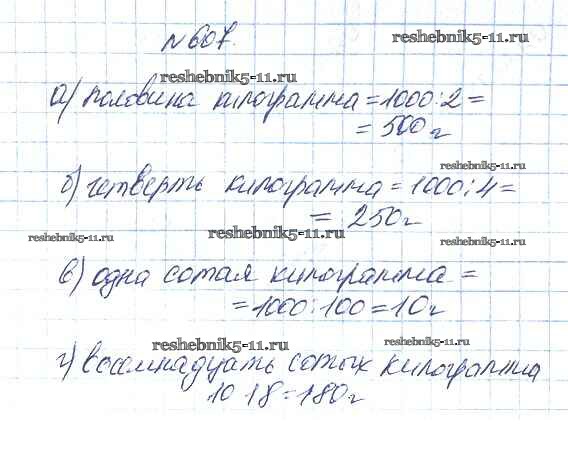 №607.
reshebnik5-11.ru
reshebnik5-11.ru
а) половина килограмма = 1000:2 =
= 500 г
reshebnik5-11.ru
б) четверть килограмма = 1000:4 =
= 250 г
reshebnik5-11.ru
reshebnik5-11.ru
reshebnik5-11.ru
в) одна сотая килограмма =
= 1000:100 = 10 г
reshebnik5-11.ru
reshebnik5-11.ru
г) восемнадцать сотых килограмма
10 18 = 180 г